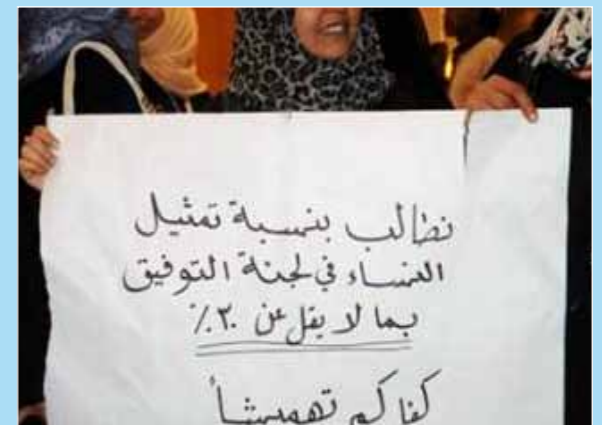 نطالب بنسبة تمثيل
النساء في لجنة التوفيق
بما لا يقل عن ٣٠٪
كفاكم تهميشاً